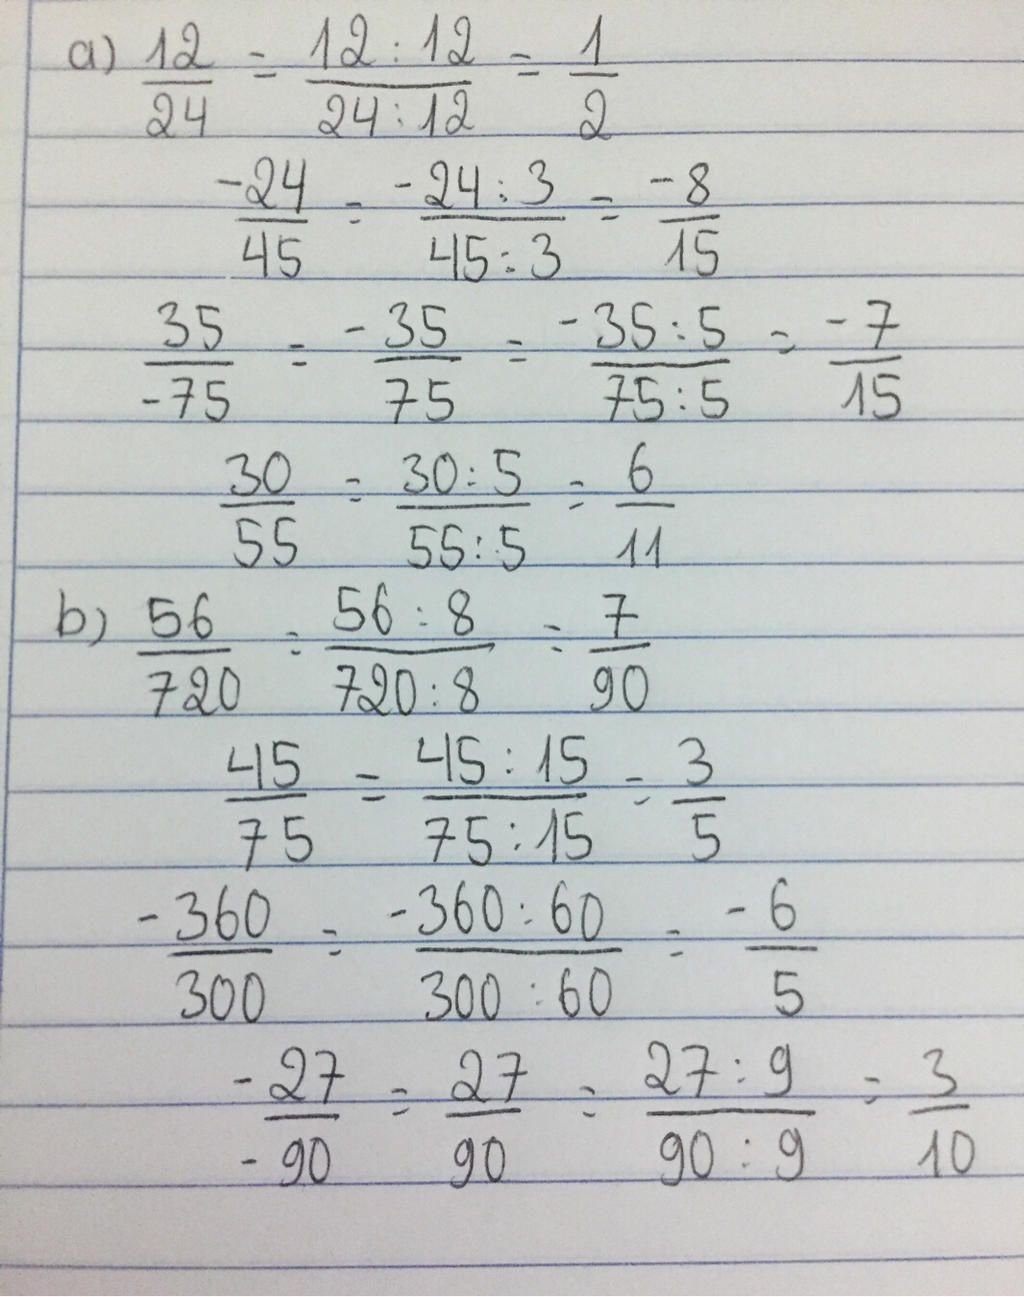 a) 12/24 = 12:12/24:12 = 1/2
-24/45 = -24:3/45:3 = -8/15
35/-75 = -35/75 = -35:5/75:5 = -7/15
30/55 = 30:5/55:5 = 6/11
b) 56/720 = 56:8/720:8 = 7/90
45/75 = 45:15/75:15 = 3/5
-360/300 = -360:60/300:60 = -6/5
-27/-90 = 27/90 = 27:9/90:9 = 3/10